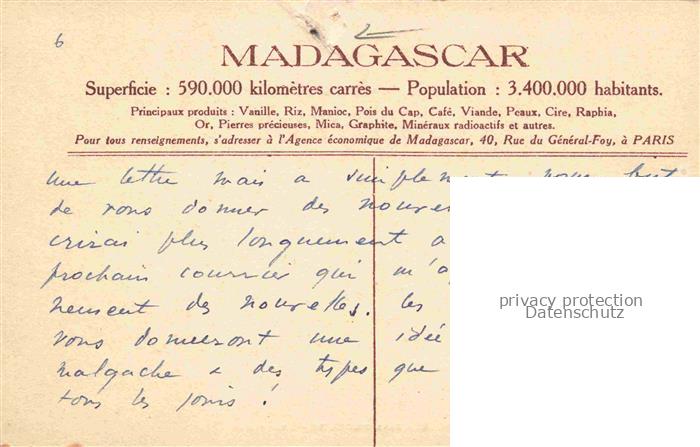 6
MADAGASCAR
Superficie : 590.000 kilomètres carrès — Population : 3.400.000 habitants.
Principaux produits : Vanille, Riz, Manioc, Pois du Cap, Café, Viande, Peaux, Cire, Raphia,
Or, Pierres précieuses, Mica, Graphite, Minéraux radioactifs et autres.
Pour tous renseignements, s'adresser à l'Agence économique de Madagascar, 40, Rue du Général-Foy, à PARIS
une lettre mais a simplement pour but
de vous donner des nouve
crirai plus longuement a
prochain courrier qui m'a
nement des nouvelles. Les
vous donneront une idée
malgache & des types que
tous les jours !
privacy protection
Datenschutz